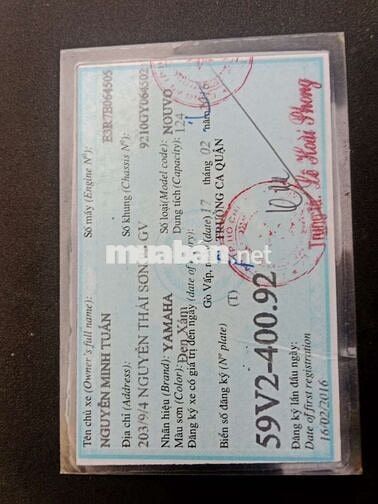 Tên chủ xe (Owner's full name):
NGUYỄN MINH TUẤN
Số máy (Engine Nº):
E3R7E064505
Địa chỉ (Address):
203/9/4 NGUYỄN THÁI SƠN GV
Số khung (Chassis Nº):
Nhãn hiệu (Brand): YAMAHA
Số loại (Model code): NOUVO
Màu sơn (Color): Đen Xám
Dung tích (Capacity): 124
Đăng ký xe có giá trị đến ngày (date of expiry):
Gò Vấp, ngày (date) 17 tháng 02 năm 2016
TRƯỞNG CA QUẬN
Biển số đăng ký (Nº plate) (T)
59V2-400.92
Đăng ký lần đầu ngày:
Date of first registration
16/02/2016
Trung tá. Lê Hoài Phong
muaban.net